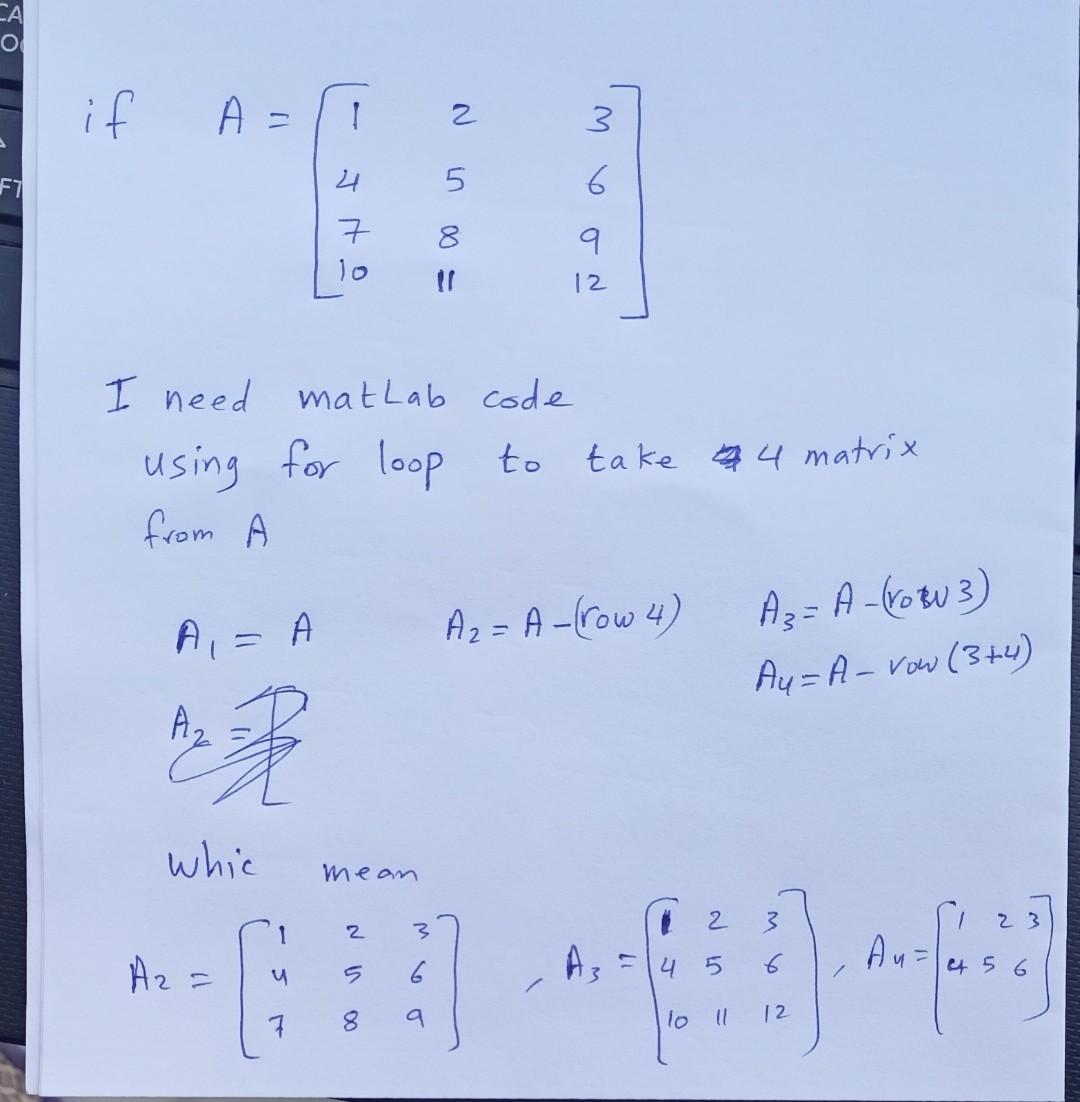 CA
FT
if A = [1 2 3
4 5 6
7 8 9
10 11 12]
I need matLab code
using for loop to take 4 matrix
from A
A1 = A A2 = A - (row 4) A3 = A - (row 3)
A4 = A - row (3+4)
A2 =
Whic mean
A2 = [1 2 3
4 5 6
7 8 9]
, A3 = [1 2 3
4 5 6
10 11 12]
, A4 = [1 2 3
4 5 6]